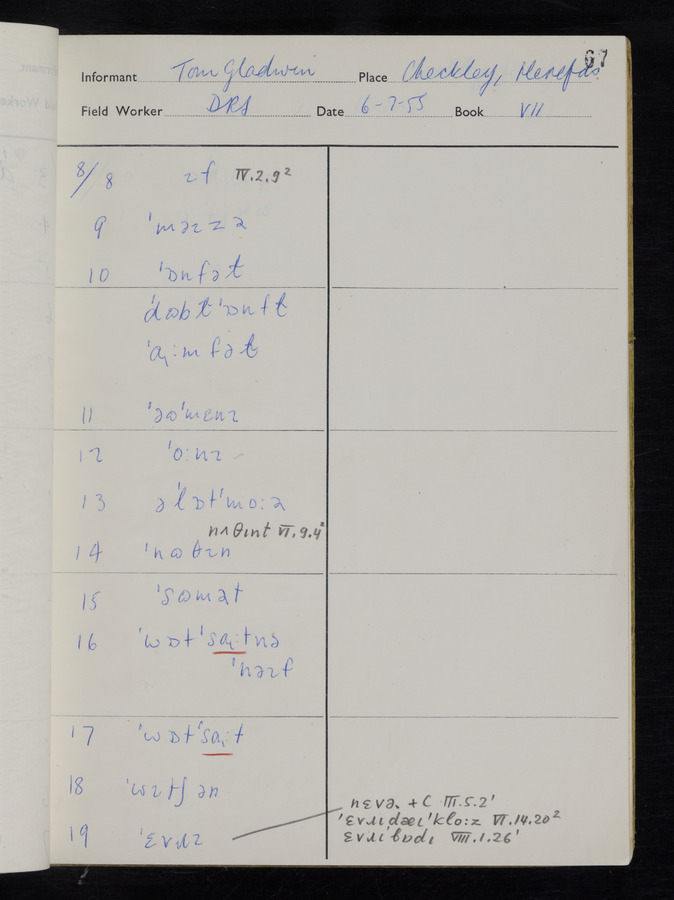 67
Informant Tom Gladwin Place Checkley, Herefds
Field Worker DRS Date 6-7-55 Book VII
8/8 ɪf IV.2.9²
9
10 'ɒnfət
'dabt 'ɒnft
11
12 'o:nɪ
13 ə'lɒt'mo:ə
nʌθɪnt VI.9.4²
14 'nʊθɪn
15 'sʊmət
16 'wɒt'sa̧:tnə
'nəɪf
17 'wɒt'sa̧:t
18 'wɪtʃən
19 'ɛvɹɪ
nɛvə + C III.5.2'
'ɛvɹɪdæɪ'klo:z VI.14.20²
ɛvɹɪ'bɒdɪ VIII.1.26'